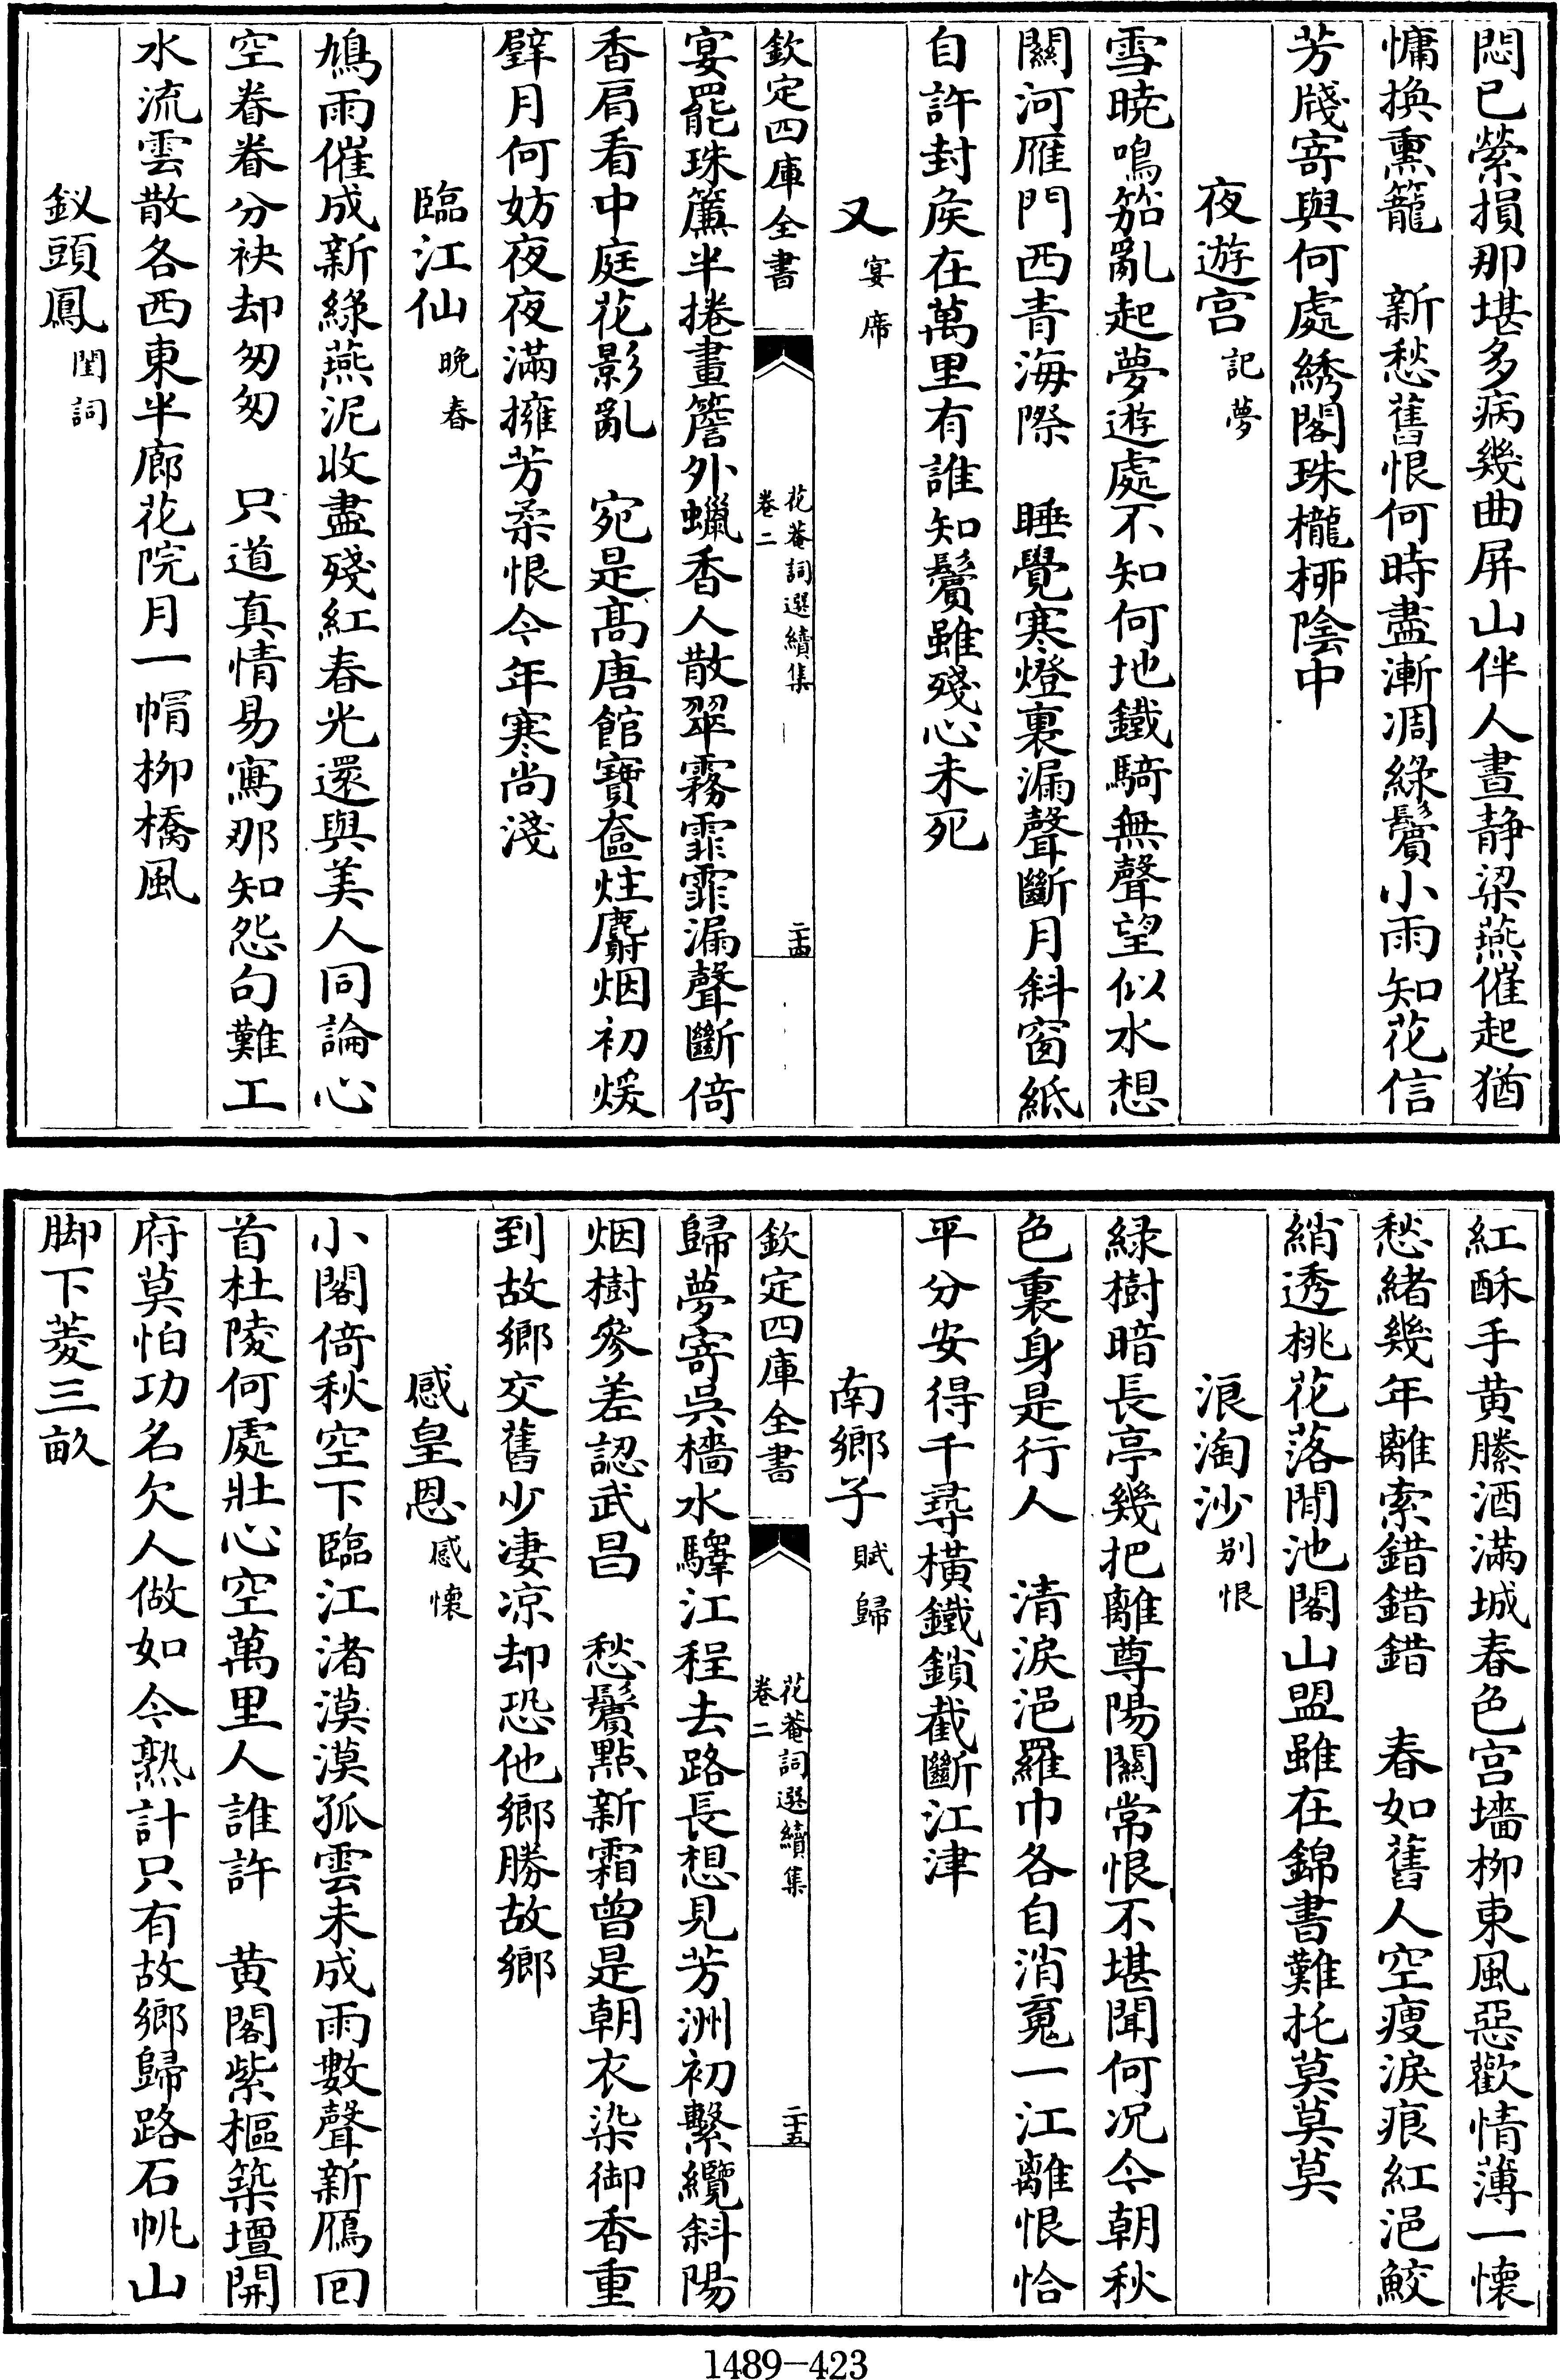 悶已縈損那堪多病幾曲屏山伴人晝静梁燕催起猶
慵換熏籠　新愁舊恨何時盡漸凋緑鬢小雨知花信
芳牋寄與何處綉閣珠櫳栁陰中
夜遊宫記夢
雪曉鳴笳亂起夢遊處不知何地鐵騎無聲望似水想
關河雁門西青海際　睡覺寒燈裏漏聲斷月斜窗紙
自許封矦在萬里有誰知鬢雖殘心未死
又宴席
欽定四庫全書
花菴詞選續集
卷二
二十四
宴罷珠簾半捲畫簷外蠟香人散翠霧霏霏漏聲斷倚
香肩看中庭花影亂　宛是髙唐館寶奩炷麝烟初煖
璧月何妨夜夜滿擁芳柔恨今年寒尚淺
臨江仙晚春
鳩雨催成新綠燕泥收盡殘紅春光還與美人同論心
空眷眷分袂却匆匆　只道真情易寫那知怨句難工
水流雲散各西東半廊花院月一㡌栁橋風
釵頭鳳閨詞
紅酥手黄縢酒滿城春色宫墻栁東風惡歡情薄一懐
愁緒幾年離索錯錯錯　春如舊人空瘦淚痕紅浥鮫
綃透桃花落閒池閣山盟雖在錦書難托莫莫莫
浪淘沙别恨
緑樹暗長亭幾把離尊陽關常恨不堪聞何况今朝秋
色裏身是行人　清淚浥羅巾各自消䰟一江離恨恰
平分安得千尋橫鐵鎖截斷江津
南鄉子賦歸
欽定四庫全書
花菴詞選續集
卷二
二十五
歸夢寄吳檣水驛江程去路長想見芳洲初繫纜斜陽
烟樹參差認武昌　愁鬢點新霜曾是朝衣染御香重
到故鄉交舊少凄凉却恐他鄉勝故鄉
感皇恩感懐
小閣倚秋空下臨江渚漠漠孤雲未成雨數聲新鴈囘
首杜陵何處壯心空萬里人誰許　黄閣紫樞築壇開
府莫怕功名欠人做如今熟計只有故鄉歸路石帆山
脚下菱三畝
1489-423